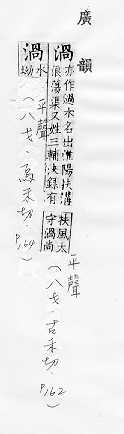 廣韻
渦 亦作過水名出淮陽扶溝
浪蕩渠又姓三輔決錄有
扶風太
守渦尚
平聲
(八戈·古禾切 P.162)
渦 水
坳
平聲
(八戈·烏禾切 P.164)